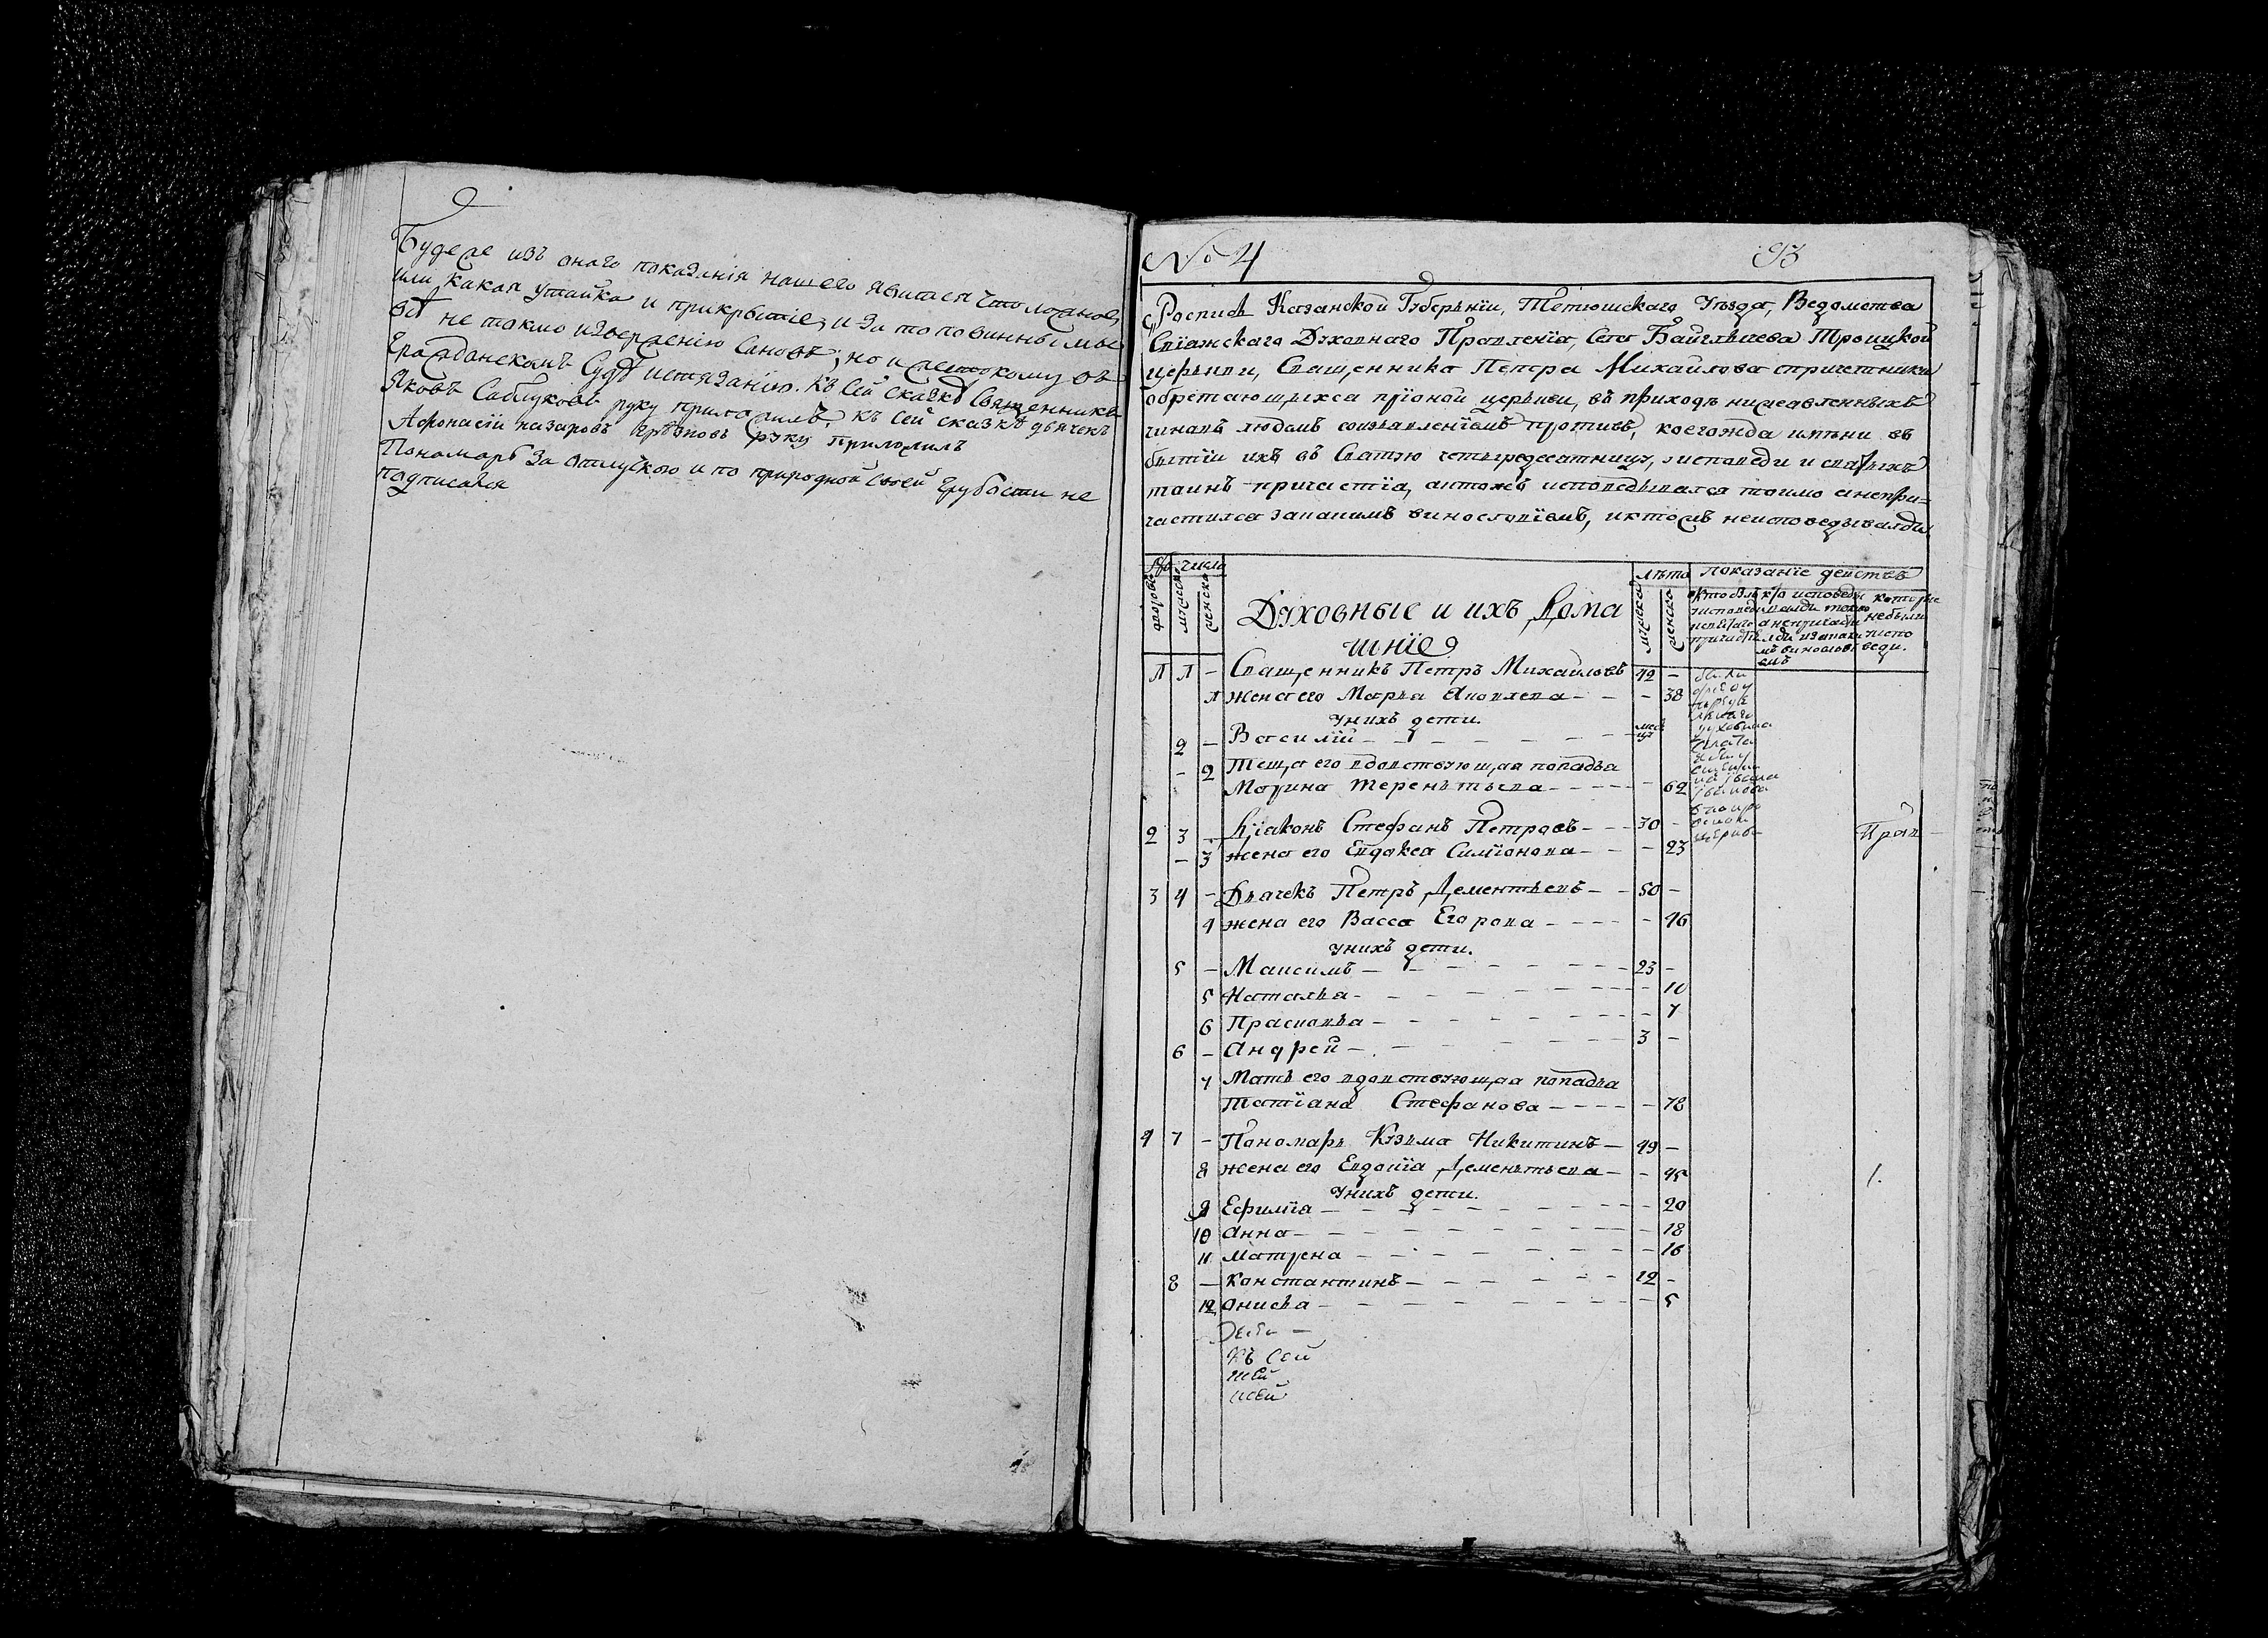 Буде же изъ онаго показанія нашего явится что ложное,
или какая утайка и прикрытіе, и за то повинны мы
не токмо изверженію сановъ; но и жестокому въ
Гражданскомъ Судѣ истязанію. Къ сей сказкѣ Священникъ
Яковъ руку приложилъ, къ сей сказкѣ дьячекъ
Афонасіи назаровъ руку приложилъ
Пономарь За отлучкою и по природной своей грубости не
подписался
№ 4
93
Роспись Казанской Губернїи, Тетюшскаго Уѣзда, Ведомства
Свїажскаго Духовнаго Правленїа, Села Троицкой
церькви, Священника Петра Михайлова спричетники
обретающихся прїоной церькви, въ приходѣ нижеявленныхъ
чиновъ людемъ соизъявленїемъ противъ, коегождо имяни о
бытїи ихъ въ Святую четыредесятницу, уисповеди и святыхъ
таинъ причастїа, актожъ исповедывался токмо анепри=
частился закакимъ винословїемъ, иктожъ неисповедывался
№ число
дворовъ
мужеска
женска
Духовные и ихъ Дома
шнїе
лѣта
мужска
женска
показанїе действъ
кто былъ
у исповеди
исвятаго
причаст.
кто исповеды
вался токмо
а непричасти
лся и закаки
мъ винослов
емъ
которые
небыли
уиспо
веди.
1 1 – Священникъ Петръ Михайловъ 42 –
1 жена его Марья Яковлева – – 38
Унихъ дети.
2 – Василїй –
– 2 Теща его вдовствующая попадья
Марина Терентьева – – 62
2 3 – Дїаконъ Стефанъ Петровъ – 30 –
– 3 жена его Евдокея Симїонова – – 23
3 4 – Дьячекъ Петръ Дементьевъ – 50 –
4 жена его Васса Егорова – – 46
Унихъ дети.
5 – Максимъ – 23 –
5 Наталья – – 10
6 Прасковья – – 7
6 – Андрей – 3 –
7 Мать его вдовствующая попадья
Татїана Стефанова – – 78
4 7 – Пономарь Кузьма Никитинъ – 49 –
8 жена его Евдокїа Дементьева – – 45
Унихъ дети.
9 Ефимїа – – 20
10 Анна – – 18
11 Матрена – – 16
8 – Константинъ – 12 –
12 Анисья – – 5
Къ сей